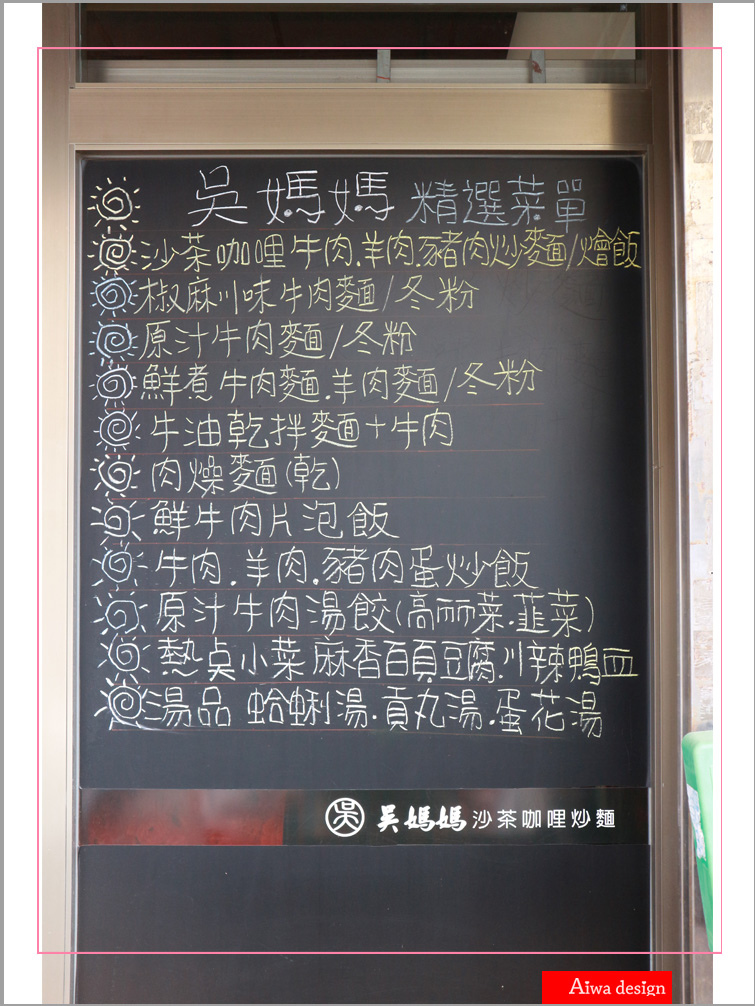 吳媽媽 精選菜單
沙茶咖哩牛肉.羊肉.豬肉炒麵/燴飯
椒麻川味牛肉麵/冬粉
原汁牛肉麵/冬粉
鮮煮牛肉麵.羊肉麵/冬粉
牛油乾拌麵+牛肉
肉燥麵(乾)
鮮牛肉片泡飯
牛肉.羊肉.豬肉蛋炒飯
原汁牛肉湯餃(高麗菜.韮菜)
熱点小菜 麻香百頁豆腐.川辣鴨血
湯品 蛤蜊湯.貢丸湯.蛋花湯
吳 吳媽媽 沙茶咖哩炒麵
Aiwa design